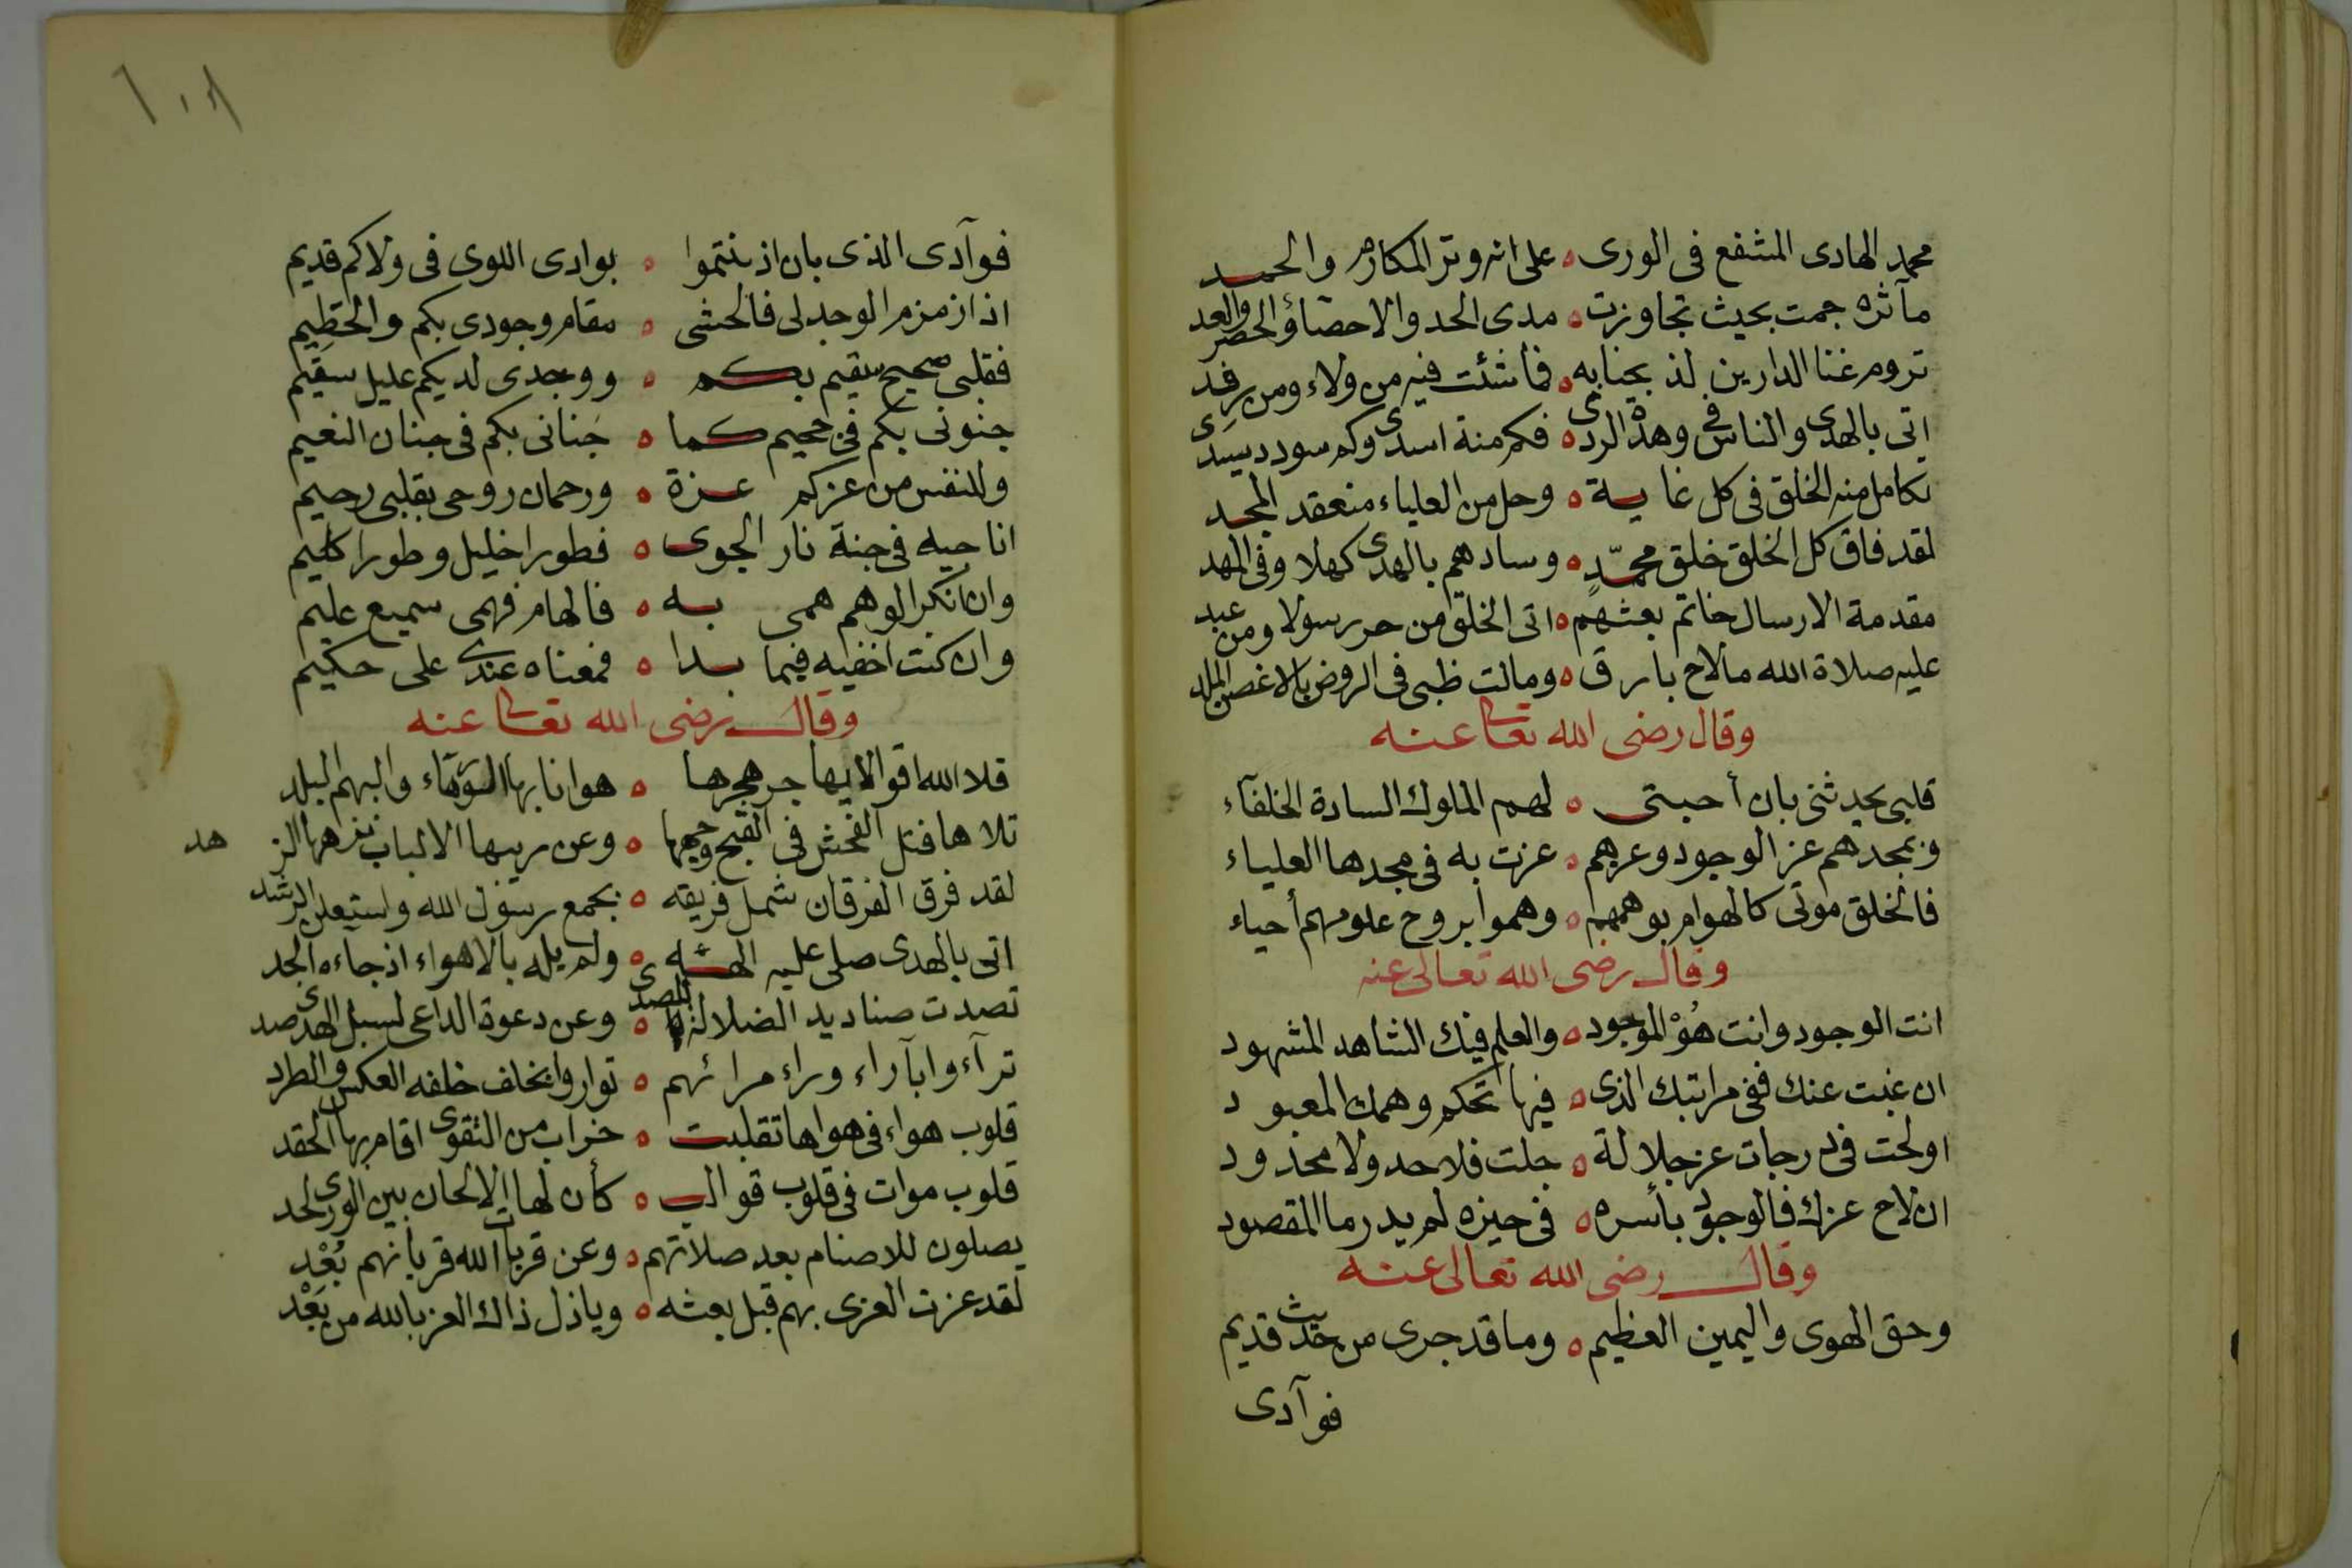 محمد الهادى المشفع فى الورى ه على انه وتر المكارم والحمد
مآثره جمت بحيث تجاوزت ه مدى الحد والاحصاؤ الحصر والعد
تروم غنا الدارين لذ بجنابه ه فما شئت فيه من ولاء ومن رفد
اتى بالهدى والناس فى وهدة الردى ه فكم منة اسدى وكم سودد يسدى
تكامل منه الخلق فى كل غاية ه وحل من العلياء منعقد المجد
لقد فاق كل الخلق خلق محمّدٍ ه وسادهم بالهدى كهلا وفى المهد
مقدمة الارسال خاتم بعثهم ه اتى الخلق من حر رسولا ومن عبد
عليه صلاة الله مالاح بارق ه ومالت ظبى فى الروض بالاغصن الملد
وقال رضى الله تعالى عنه
قلبى يحدثنى بان أحبتى ه لهم الملوك السادة الخلفآء
وبمجدهم عز الوجود وعزهم ه عزت به فى مجدها العلياء
فالخلق موتى كالهوام بوهمهم ه وهموا بروح علومهم أحياء
وقال رضى الله تعالى عنه
انت الوجود وانت هُوْ الموجود ه والعلم فيك الشاهد المشهود
ان غبت عنك ففى مراتبك الذى ه فيها تحكم وهمك المعبود
اولحت فى درجات عز جلالة ه جلت فلا حد ولا محدود
ان لاح عزك فالوجود بأسره ه فى حيزه لم يدر ما المقصود
وقال رضى الله تعالى عنه
وحق الهوى واليمين العظيم ه وما قد جرى من حديث قديم
فوآدى
فوآدى الذى بان اذ بنتموا ه بوادى اللوى فى ولاكم قديم
اذا زمزم الوجد لى فالحشى ه مقام وجودى بكم والحطيم
فقلبى صحيح سقيم بكم ه ووجدى لديكم عليل سقيم
جنونى بكم فى جحيم كما ه جَنانى بكم فى جنان النعيم
وللنفس من عزكم عزة ه ورحمان روحى بقلبى رحيم
اناجيه فى جنة نار الجوى ه فطورا خليل وطورا كليم
وان انكر الوهم همى به ه فالهام فهمى سميع عليم
وان كنت اخفيه فيما بدا ه فمعناه عندى على حكيم
وقال رضى الله تعالى عنه
قلا الله اقوالا بها جر هجرها ه هوانا بها والبهم البلد
تلاها فتل الفحش فى القبح وجهها ه وعن ريبها الالباب نزهها الز هد
لقد فرق الفرقان شمل فريقه ه بجمع رسول الله واستعلن الرشد
اتى بالهدى صلى عليه الهه ه ولم يله بالاهواء اذ جاءه الجد
تصدت صناديد الضلالة للصدى ه وعن دعوة الداعى لسبل الهدى صد
ترآءوا بآراء وراء مرائهم ه تواروا بخلف خلفه العكس والطرد
قلوب هواء فى هواها تقلبت ه خراب من التقوى اقام بها الحقد
قلوب موات فى قلوب قوالب ه كأن لها الالحان بين الورى لحد
يصلون للاصنام بعد صلاتهم ه وعن قربات الله قربانهم بُعْد
لقد عزت العزى بهم قبل بعثه ه وياذل ذاك العز بالله من بَعْد